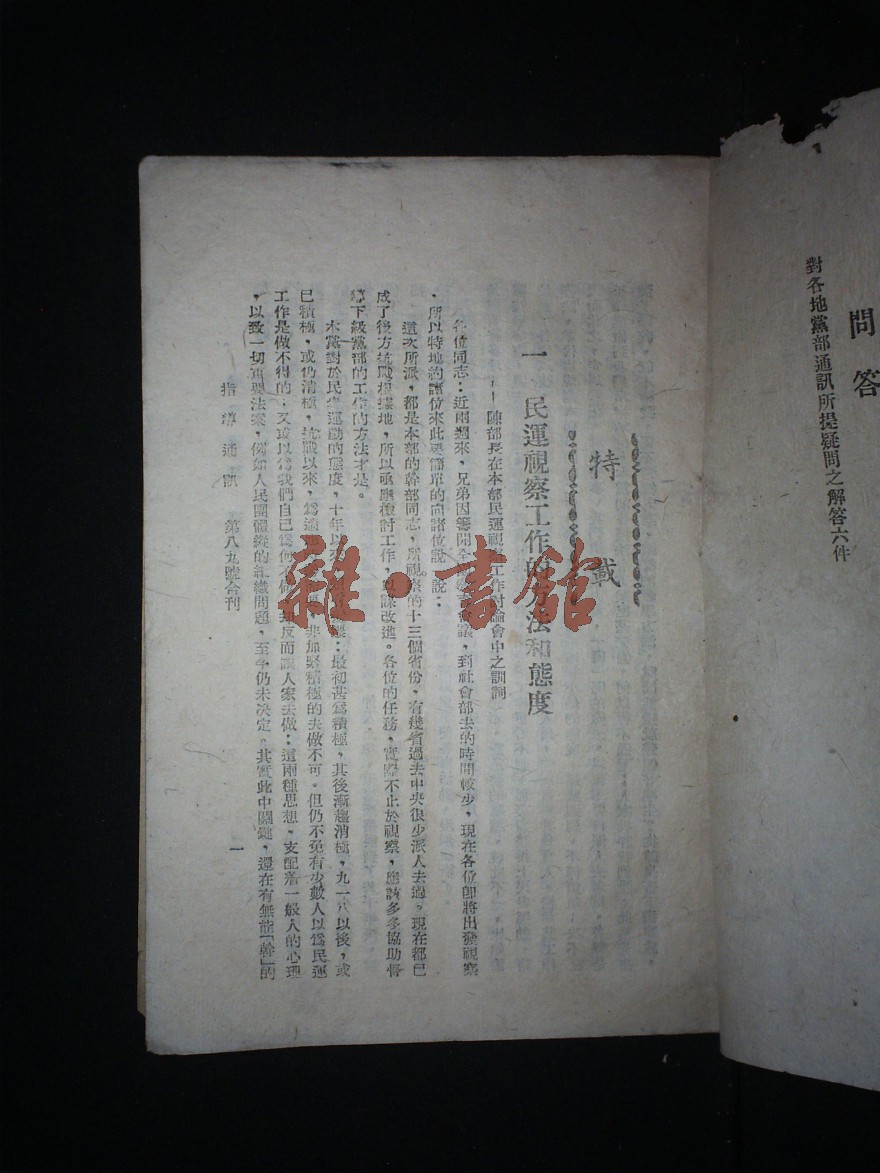 問答
對各地黨部通訊所提疑問之解答六件
特載
一 民運視察工作的方法和態度
——陳部長在本部民運視察工作討論會中之訓詞
各位同志：近兩週來，兄弟因籌開全會議，到社會部去的時間較少，現在各位卽將出發視察
，所以特地約諸位來此簡單的向諸位說一說：
這次所派，都是本部的幹部同志，所視察的十三個省份，有幾省過去中央很少派人去過。現在都已
成了後方抗戰根據地，所以亟應檢討工作，以謀改進。各位的任務，實際不止於視察，應該多多協助督
導下級黨部的工作的方法才是。
本黨對於民衆運動的態度，十年以來：最初甚爲積極，其後漸趨消極，九一八以後，或
已積極，或仍消極，抗戰以來，爲適非加緊積極的去做不可。但仍不免有少數人以爲民運
工作是做不得的；又或以爲我們自己爲何不做，却反而讓人家去做：這兩種思想，支配着一般人的心理
，以致一切法案，例如人民團體的組織問題，至今仍未決定。其實此中關鍵，還在有無能「幹」的
指導通訊 第八九號合刊
一
雜·書館